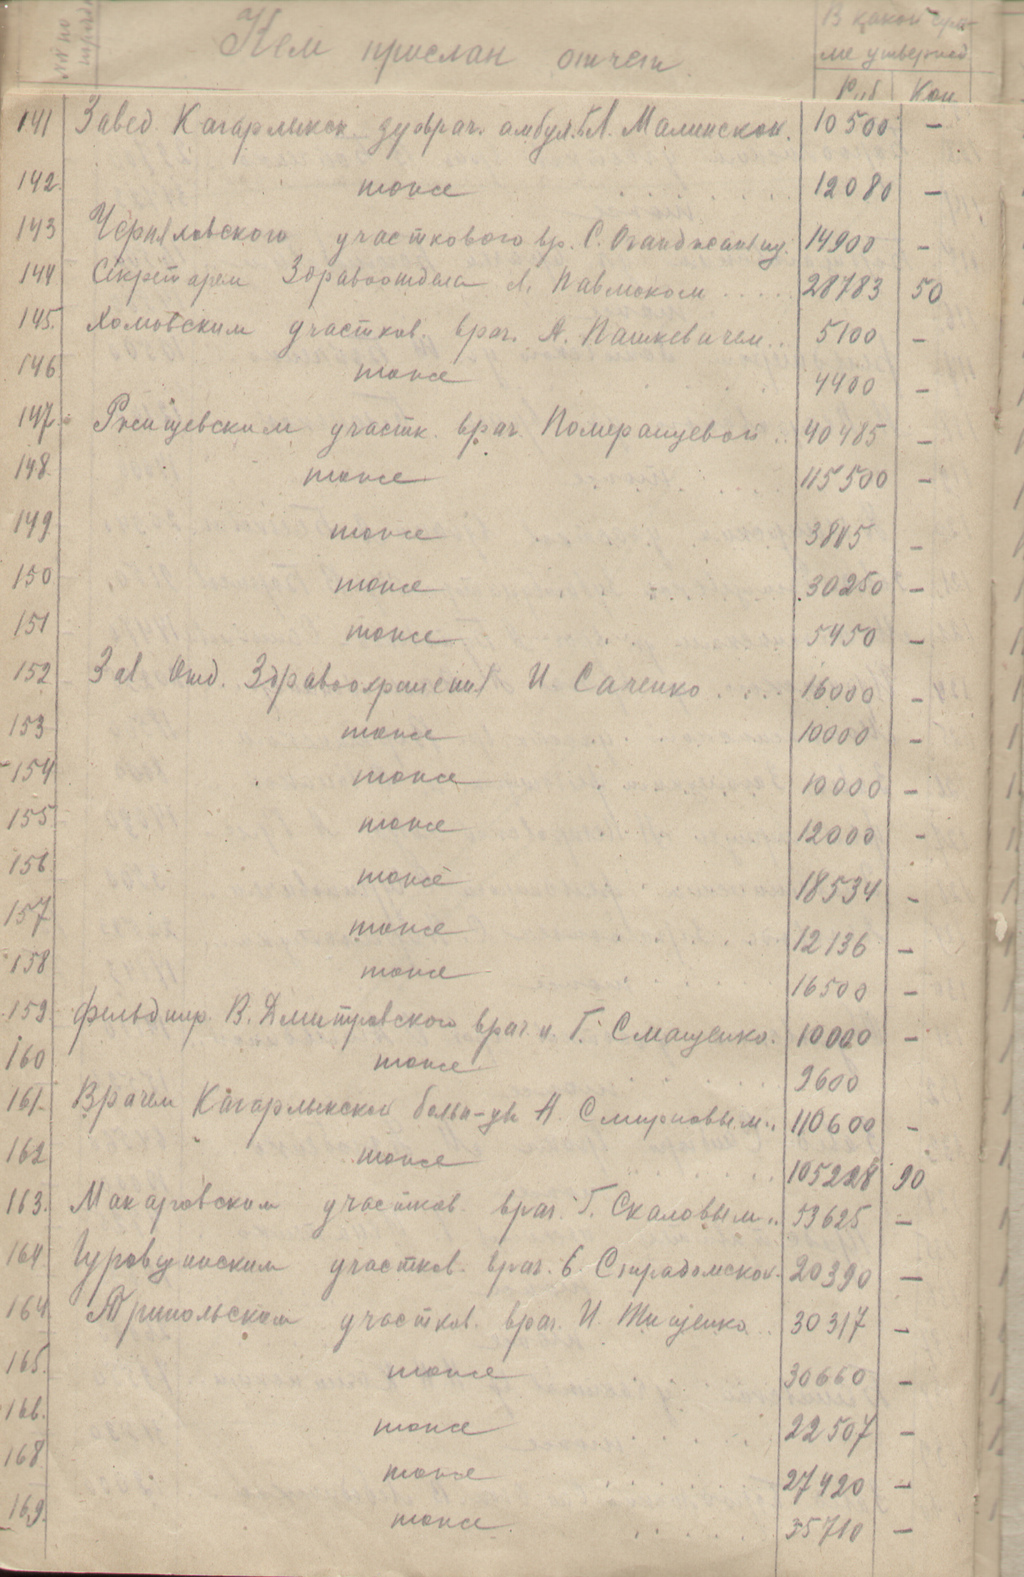 №№ по
Кем прислан отчет.
В какой сум-
ме утвержд
Руб Коп.
141 Завед. Кагарлыкск. врач. амбул. Л. Малинской. 10500 —
142. тоже 12080 —
143 участкового вр. С. 14900 —
144 Секретарем Здравоотдела Л. Павлюком 28783 50
145. участков. врач. А. Пашкевичем.. 5100 —
146 тоже 4400 —
147. Ржищевским участк. врач. Померанцевой .. 40485 —
148. тоже 115500 —
149 тоже 3815 —
150 тоже 30250 —
151 тоже 5450 —
152 Зав Отд. Здравоохранения И Саченко 16000 —
153 тоже 10000 —
154 тоже 10000 —
155 тоже 12000 —
156 тоже 18534 —
157 тоже 12136 —
158 тоже 16500 —
159 фельдшр. В. Дмитровского врач. п. Г. Смащенко. 10000 —
160 тоже 9600
161. Врачем Кагарлыкской больн-цы А. Смирновым.. 110600 —
162 тоже 105228 90
163. Макаровским участков. врач. Г. Скаловым.. 53625 —
164 участков. врач. Б Страдомской. 20390 —
164 Трипольским участков. врач. И. Тищенко .. 30317 —
165. тоже 30660 —
166. тоже 22507 —
168 тоже 27420 —
169. тоже 35710 —